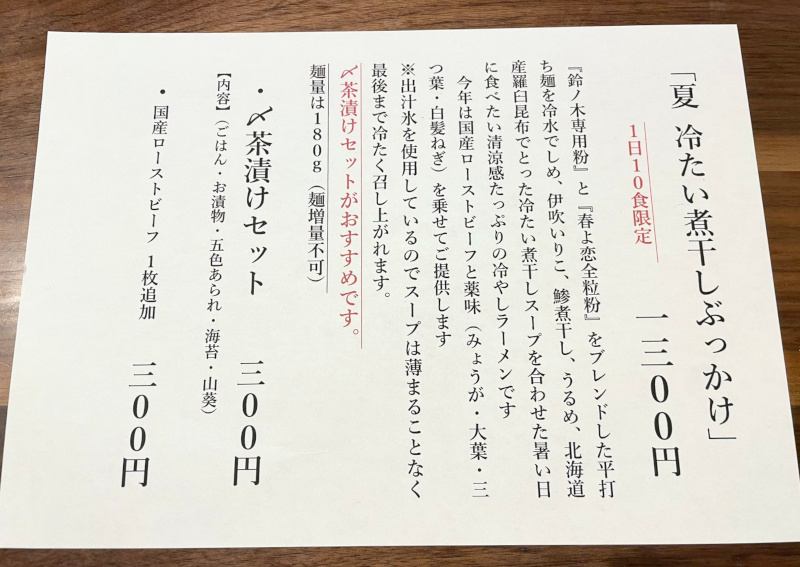 「夏 冷たい煮干しぶっかけ」
1日10食限定
一三00円
『鈴ノ木専用粉』と『春よ恋全粒粉』をブレンドした平打
ち麺を冷水でしめ、伊吹いりこ、鯵煮干し、うるめ、北海道
産羅臼昆布でとった冷たい煮干しスープを合わせた暑い日
に食べたい清涼感たっぷりの冷やしラーメンです
今年は国産ローストビーフと薬味（みょうが・大葉・三
つ葉・白髪ねぎ）を乗せてご提供します
※出汁氷を使用しているのでスープは薄まることなく
最後まで冷たく召し上がれます。
〆茶漬けセットがおすすめです。
麺量は180g（麺増量不可）
・〆茶漬けセット 三00円
【内容】（ごはん・お漬物・五色あられ・海苔・山葵）
・国産ローストビーフ 1枚追加 三00円